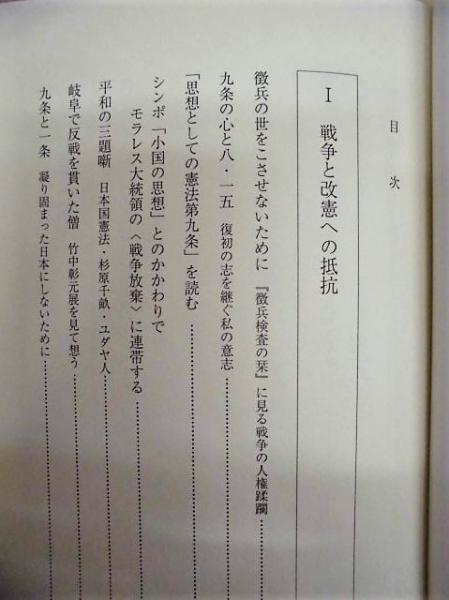 目次
I 戦争と改憲への抵抗
徴兵の世をこさせないために 『徴兵検査の栞』に見る戦争の人権蹂躙…………
九条の心と八・一五 復初の志を継ぐ私の意志…………
「思想としての憲法第九条」を読む…………
シンポ「小国の思想」とのかかわりで
モラレス大統領の〈戦争放棄〉に連帯する…………
平和の三題噺 日本国憲法・杉原千畝・ユダヤ人…………
岐阜で反戦を貫いた僧 竹中彰元展を見て想う…………
九条と一条 凝り固まった日本にしないために…………